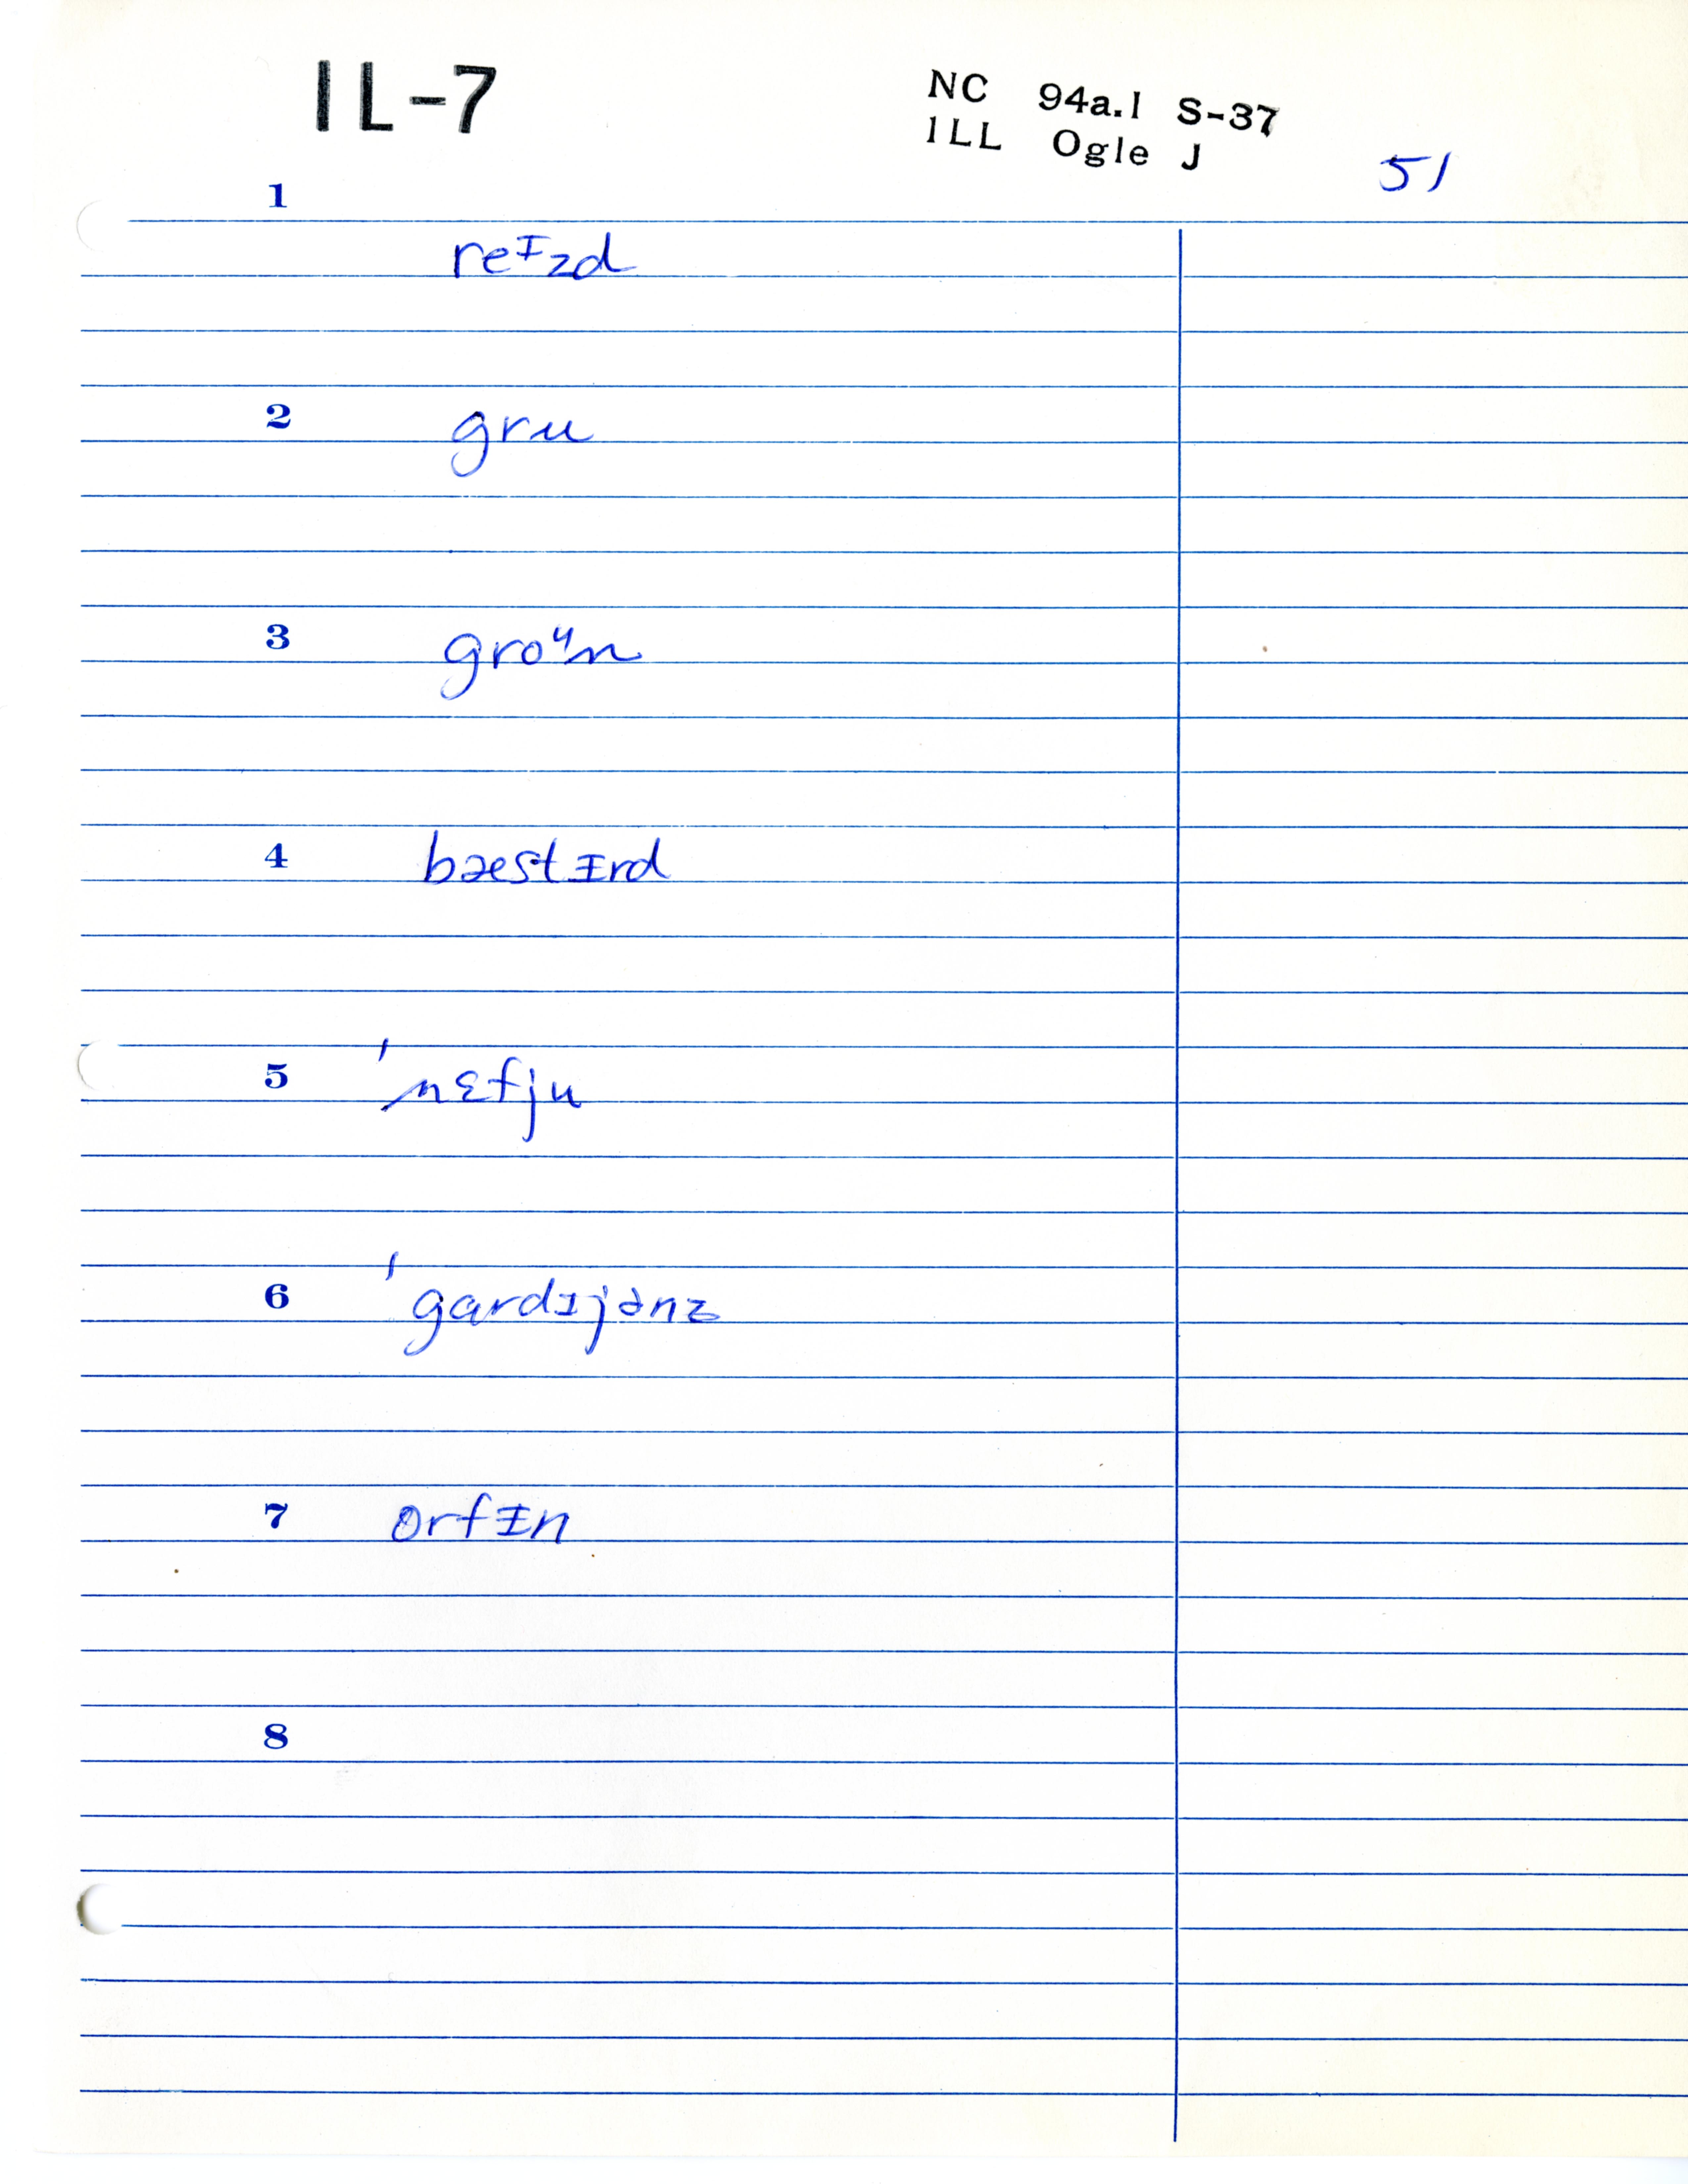 IL-7
NC 94a.1 S-37
ILL Ogle J
51
1
reᶤzd
2
gru
3
groᶶn
4
bæstᵻrd
5
ˈnɛfju
6
ˈgardɪjənz
7
ɔrfᵻn
8